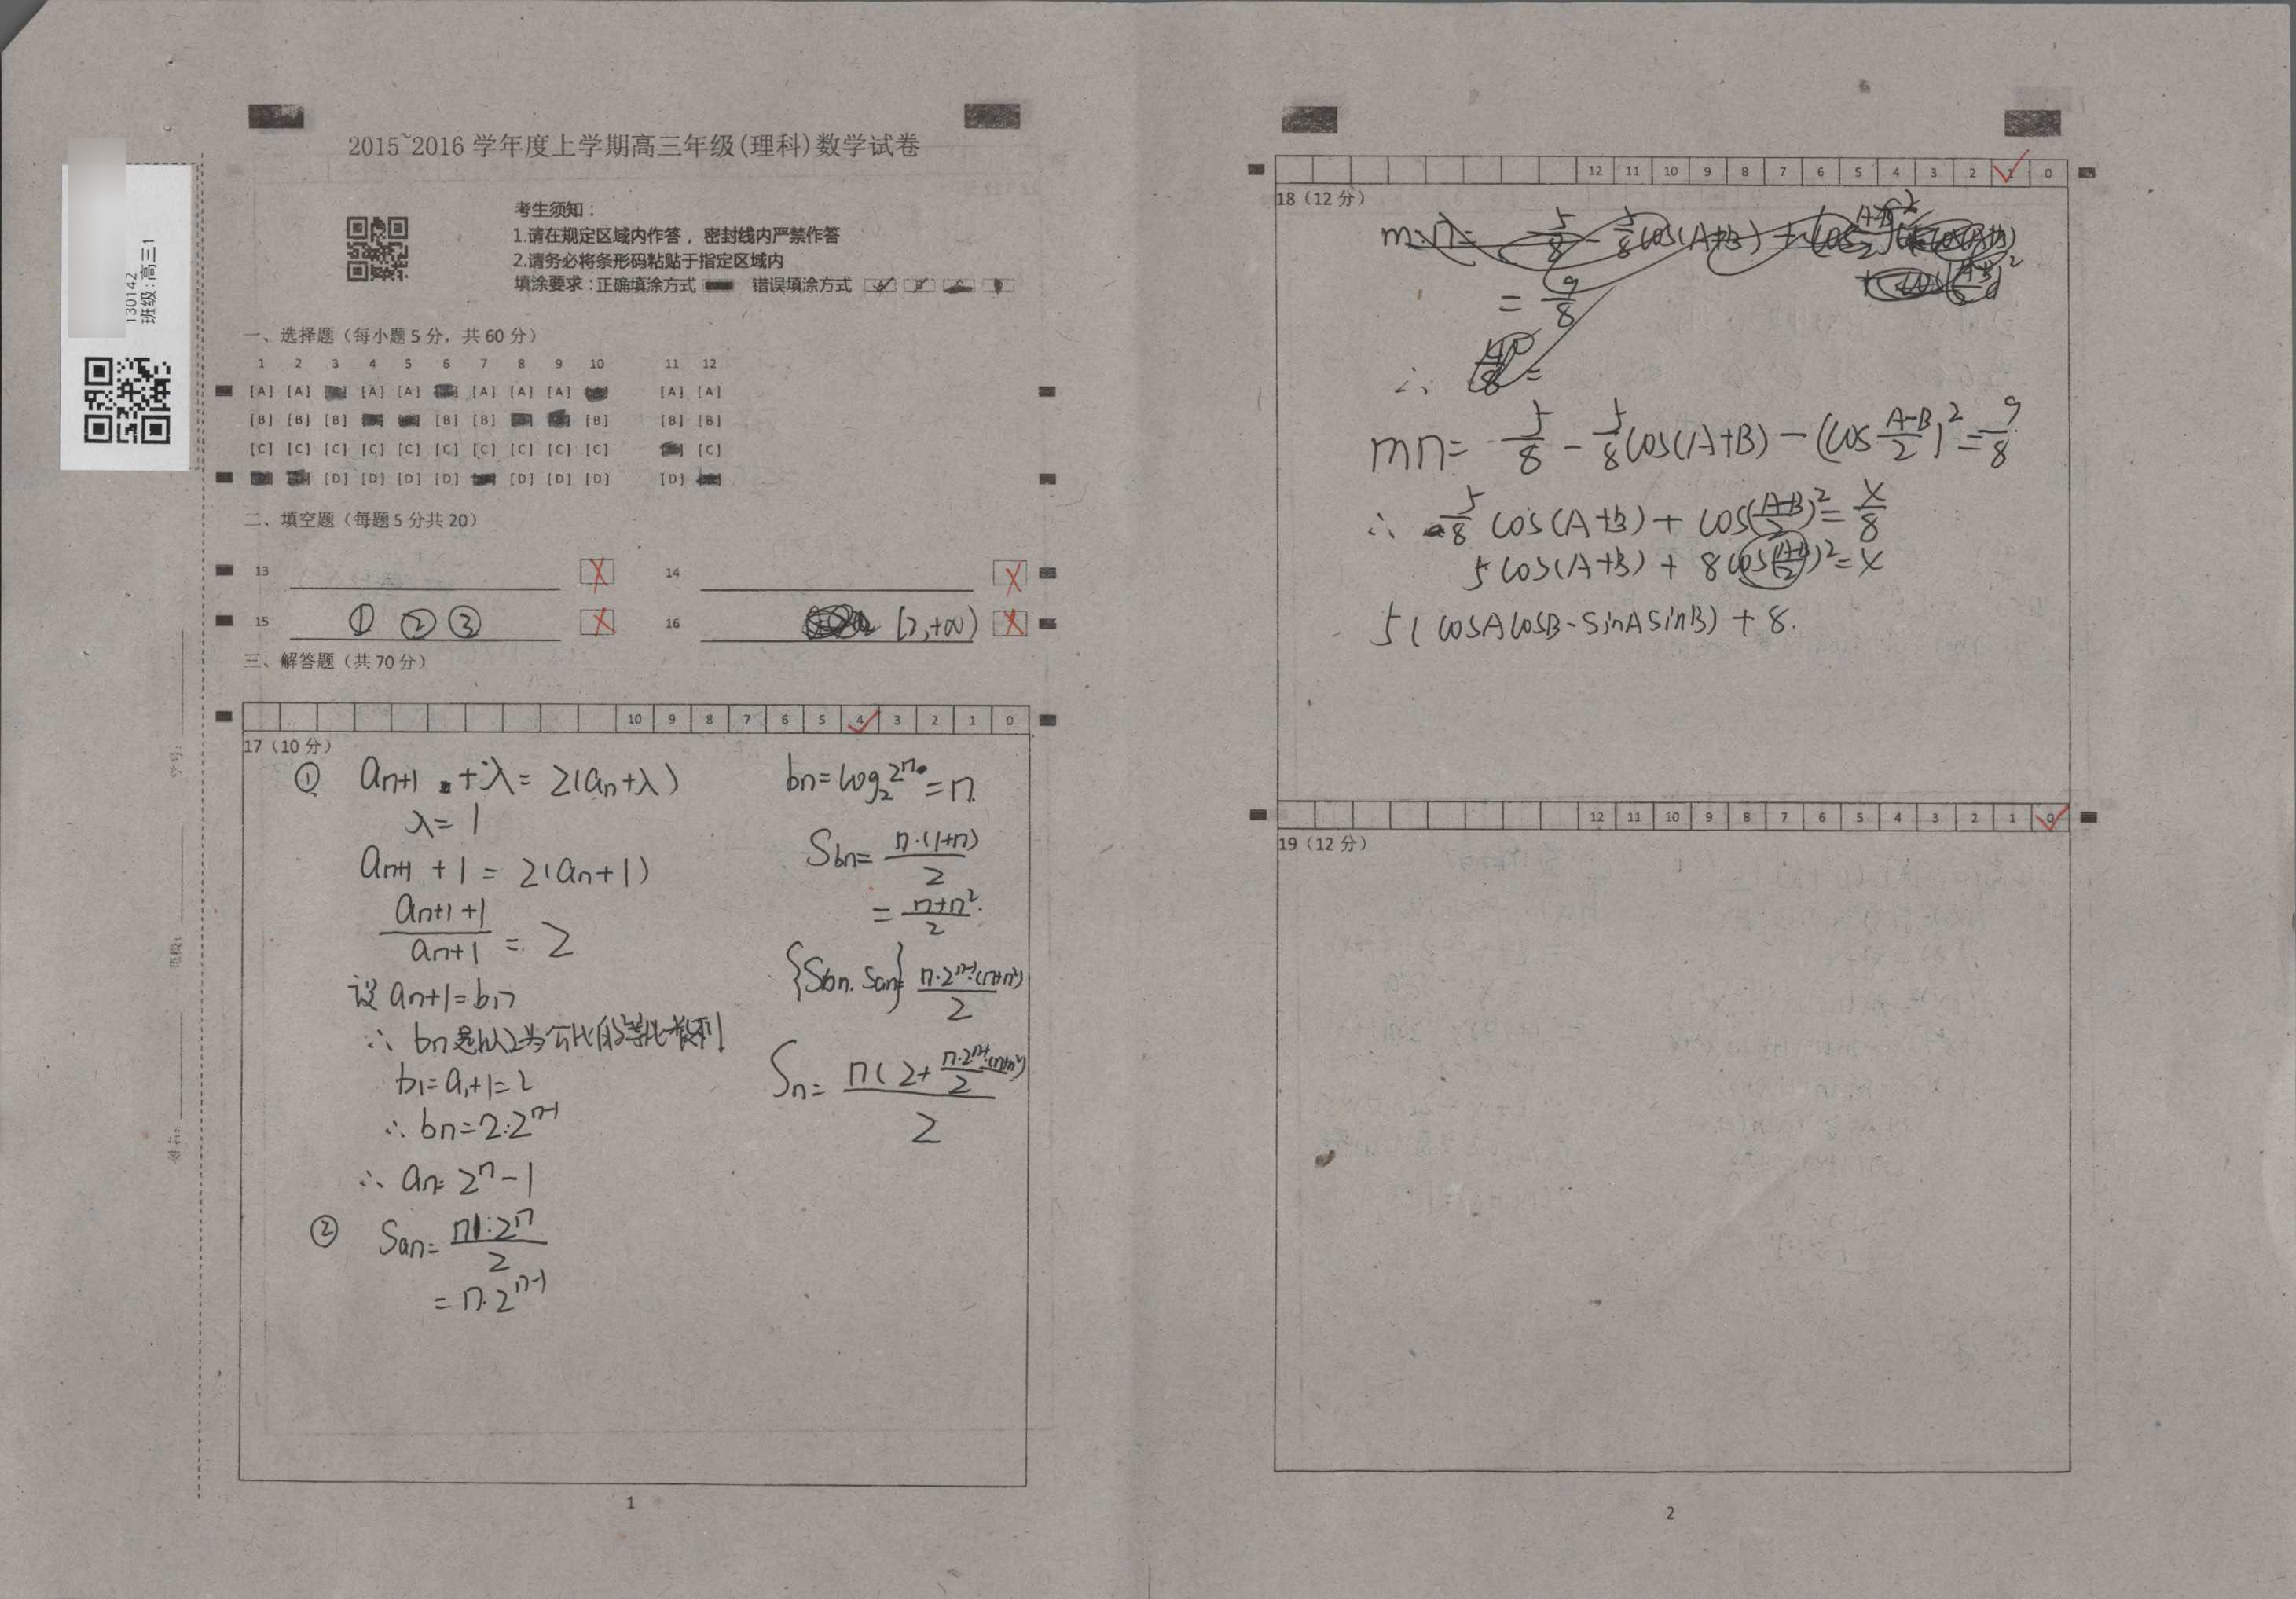 2015~2016 学年度上学期高三年级(理科)数学试卷
130142
班级:高三1
考生须知：
1.请在规定区域内作答，密封线内严禁作答
2.请务必将条形码粘贴于指定区域内
填涂要求：正确填涂方式 错误填涂方式
一、选择题（每小题 5 分，共 60 分）
1 2 3 4 5 6 7 8 9 10 11 12
[A] [A] [A] [A] [A] [A] [A] [A] [A]
[B] [B] [B] [B] [B] [B] [B] [B]
[C] [C] [C] [C] [C] [C] [C] [C] [C] [C] [C]
[D] [D] [D] [D] [D] [D] [D] [D]
二、填空题（每题 5 分共 20）
13 X 14 X
15 ① ② ③ X 16 [2,+∞) X
三、解答题（共 70 分）
10 9 8 7 6 5 4 3 2 1 0
17（10 分）
① an+1 +λ= 2(an+λ)
λ= 1
an+1 + 1 = 2(an+1)
an+1 +1 / an+1 = 2
设 an+1=bn
∴ bn是以2为公比的等比数列
b1=a1+1=2
∴ bn=2·2^n-1
∴ an= 2^n-1
② San= n·2^n / 2
= n·2^n-1
bn=log2 2^n =n.
Sbn= n·(1+n) / 2
= n+n² / 2
{Sbn·San}= n·2^n-1·(n+n²) / 2
Sn= n( 2+ n·2^n-1·(n+n²) / 2 ) / 2
1
12 11 10 9 8 7 6 5 4 3 2 1 0
18（12 分）
= 9/8
∴ =
mn= 5/8 - 5/8 cos(A+B) - (cos A-B/2)² = 9/8
∴ 5/8 cos(A+B) + cos(A-B/2)² = x/8
5cos(A+B) + 8cos(A-B/2)² = x
5( cosAcosB-sinAsinB) + 8.
12 11 10 9 8 7 6 5 4 3 2 1 0
19（12 分）
2